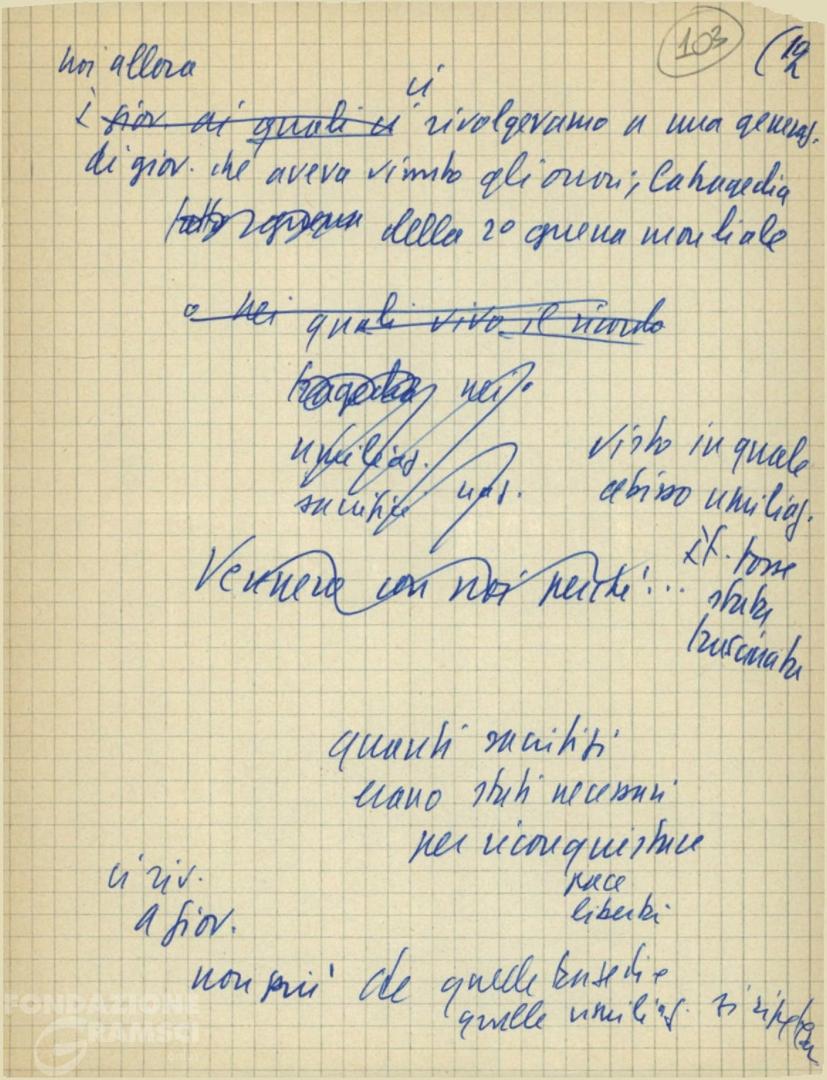 103
noi allora
ci
i giov. ai quali ci rivolgevamo a una generaz.
di giov. che aveva vissuto gli orrori, la tragedia
della 2º guerra mondiale
o nei quali vivo il ricordo
tragedia nei
umiliaz.
sacrifici naz.
visto in quale
abisso umiliaz.
It. fosse
stata
trascinata
Vennero con noi perché...
quanti sacrifizi
erano stati necessari
per riconquistare
pace
libertà
ci riv.
a giov.
non più che quelle tragedie
quelle umiliaz. si ripetes
FONDAZIONE
GRAMSCI